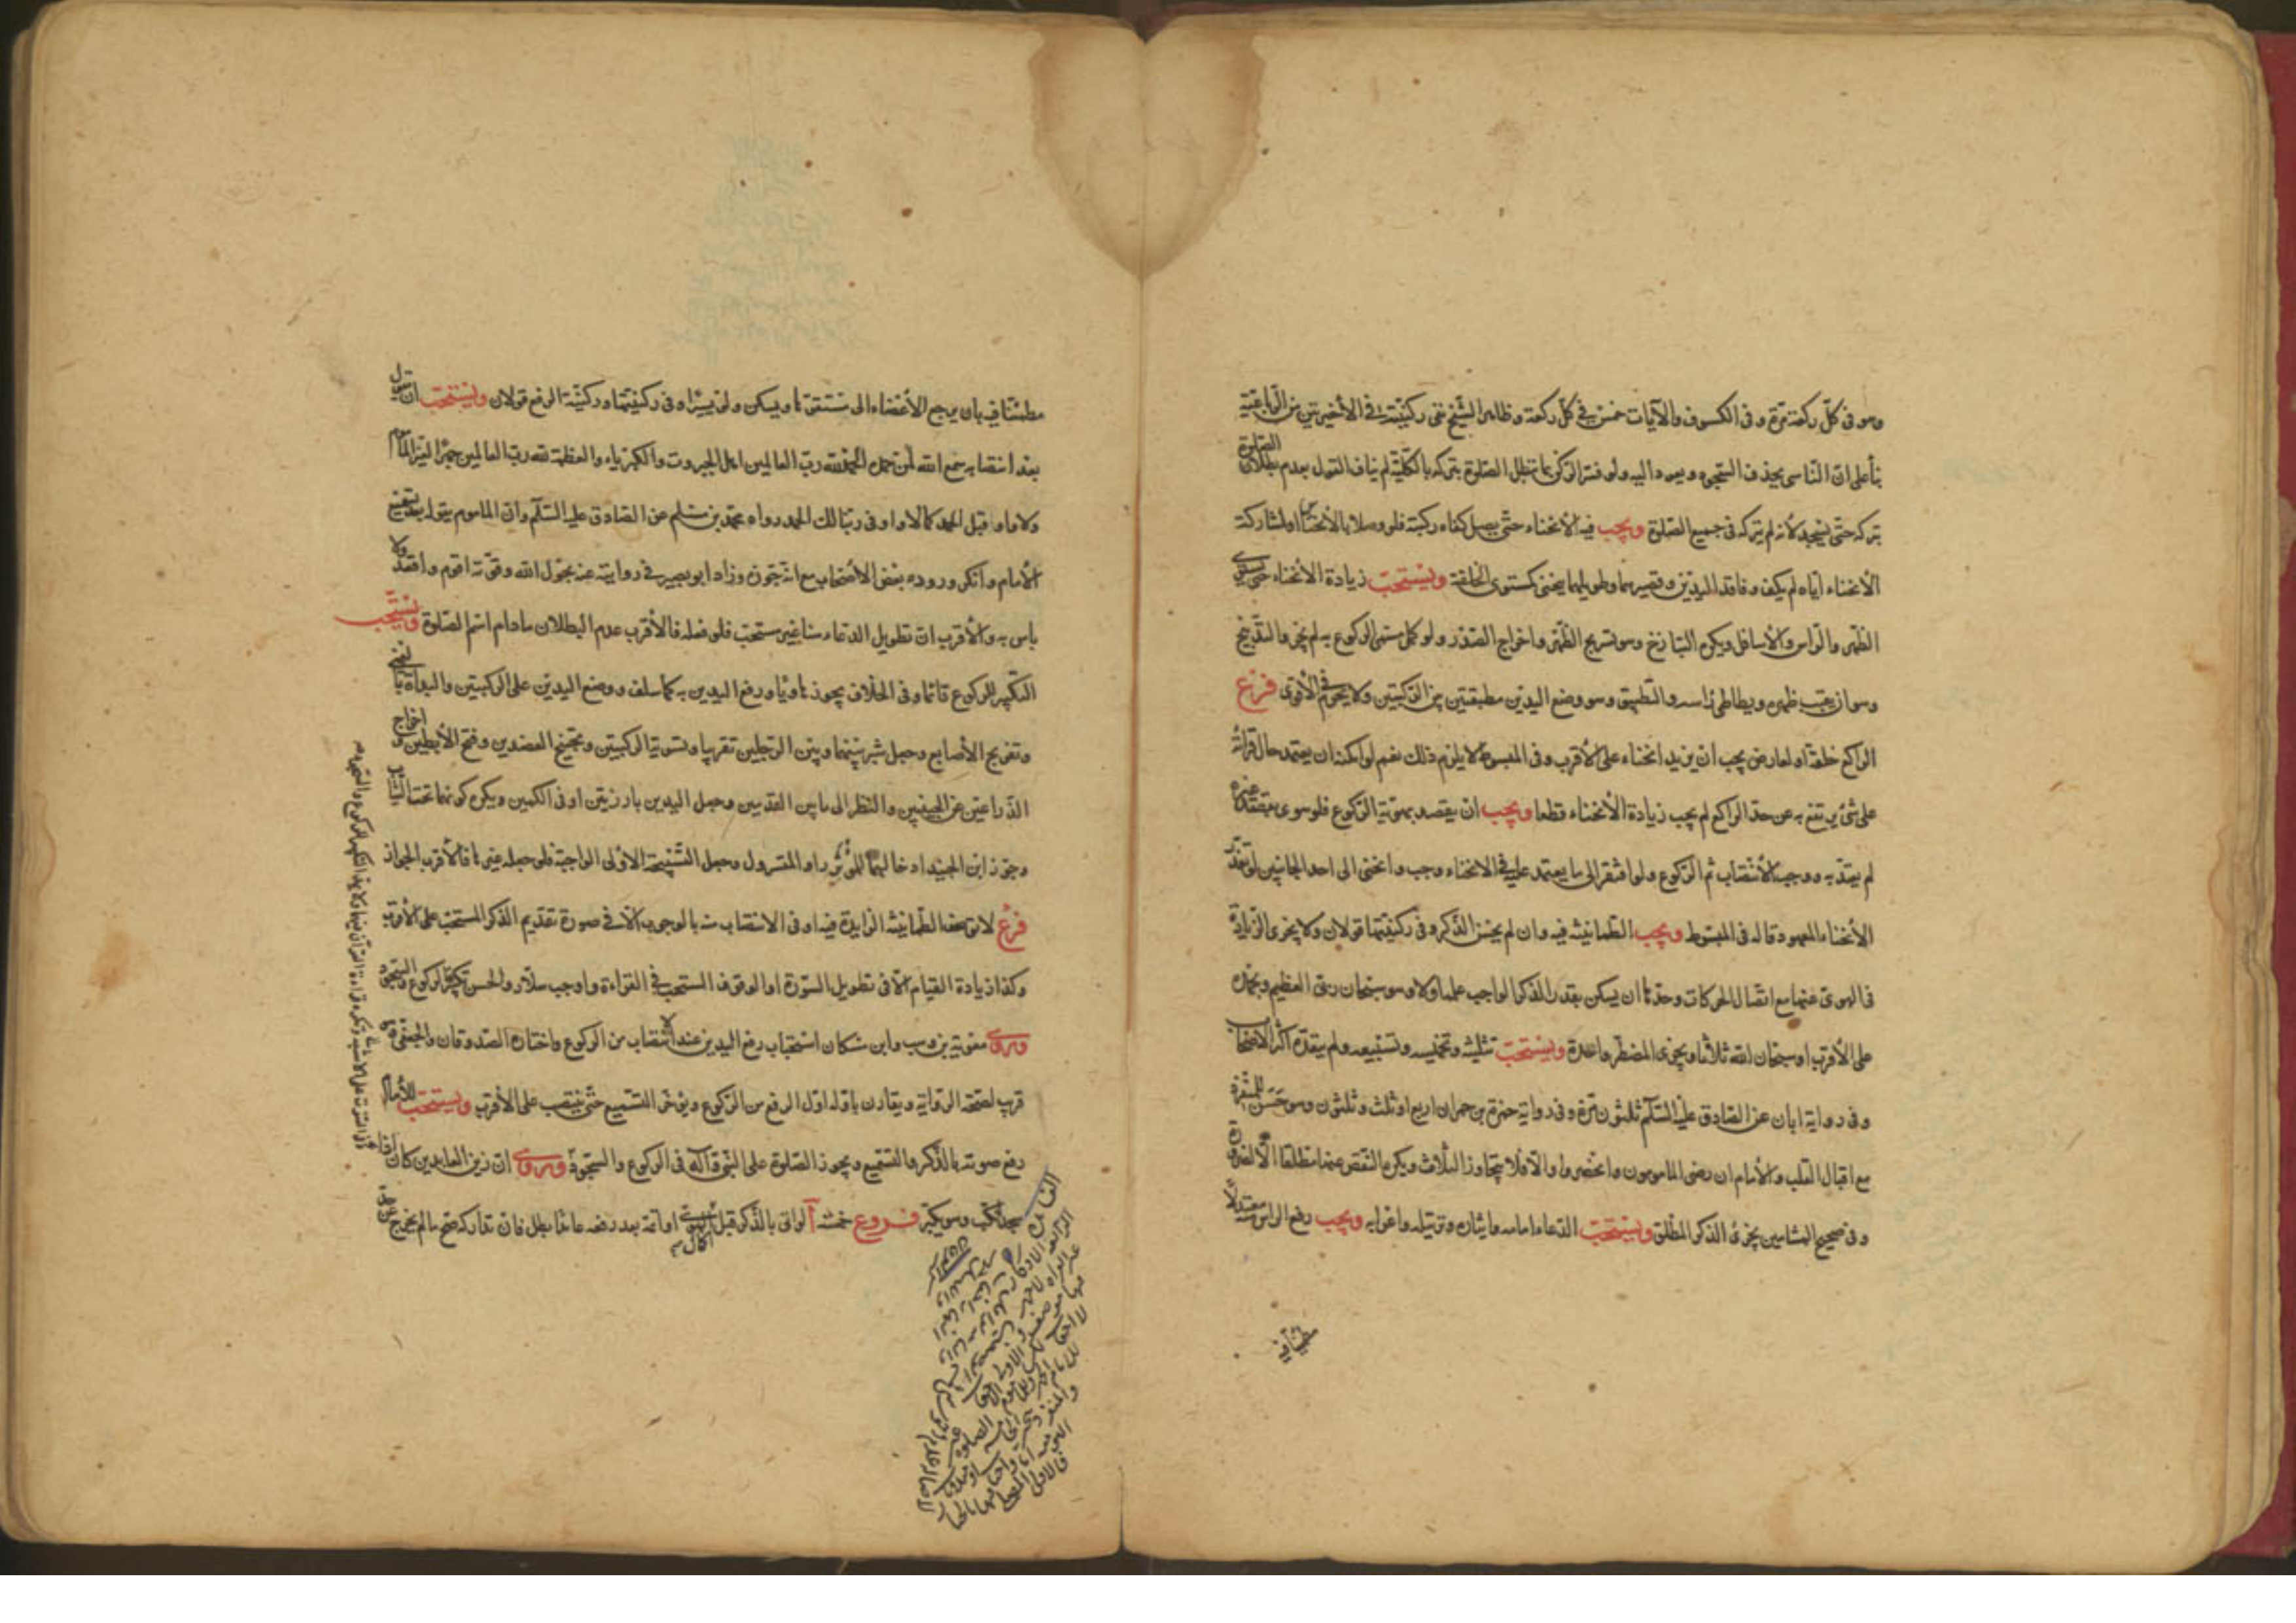 وهو في كلّ ركعة مرّة وفي الكسوف والآيات خمس في كلّ ركعة وظاهر الشّيخ نفى ركنيّته في الأخيرتين من الرّباعيّة
بناً على انّ النّاسى يحذف السّجود ويعود اليه ولو فسّر الرّكن بما تبطل الصّلوة بتركه بالكلّيّة لم يناف القول بعدم بطلان الصّلوة
بتركه حتّى يسجد لأنه لم يتركه في جميع الصّلوة ويجب فيه الأنحناء حتّى يصل كفّاه ركبتيه فلو وصلا بالأنخناس او لمشاركة
الأنحناء ايّاه لم يكف وفاقد اليدين وقصيرهما وطويلهما ينحنى كمستوى الخلقة ويستحبّ زيادة الأنحناء حتّى يستوى
الظّهر والرّاس والأسافل ويكره التبازخ وهو تسريج الظّهر واخراج الصّدر ولو كمل مسمّى الرّكوع به لم يجز والتّدبيخ
وهو ان يقبّب ظهره ويطأطئ رأسه والتّطبيق وهو وضع اليدين مطبقتين بين الرّكبتين ولا يحرم في الأقوى فرع
الراكع خلقة او لعارض يجب ان يزيد انحناء على الأقرب وفي المبسوط لا يلزم ذلك نعم لو امكنه ان يعتمد حال قراته
على شئ يرتفع به عن حدّ الراكع لم يجب زيادة الأنحناء قطعا ويجب ان يقصد بهويّه الرّكوع فلو هوى بقصد غيره
لم يعتدّ به ووجب الأنتصاب ثم الرّكوع ولو افتقر الى ما يعتمد عليه في الانحناء وجب وانحنى الى احد الجانبين لو تعذّر
الأنحناء المعهود قاله في المبسوط ويجب الطّمانينة فيه وان لم يحسن الذّكر وفي ركنيّتها قولان ولا يجزى الزّيادة
في الهوىّ عنها مع اتّصال الحركات وحدّها ان يسكن بقدر الذكر الواجب علمه اولا وهو سبحان ربّى العظيم وبحمده
على الأقرب او سبحان الله ثلاثا ويجزى المضطّر واحدة ويستحبّ تثليثه وتخميسه وتسبيعه ولم يتعدّه اكثر الاصحاب
وفي رواية ابان عن الصّادق عليه السّلام ثلثون مرّة وفي رواية حمزة بن حمران اربع او ثلث وثلثون وهو حسن للمنفرد
مع اقبال القلب والأمام ان رضى المامومون وانحصروا والّا فلا يتجاوز الثلاث ويكره النّقص عنها مطلقا الّا لضرورة
وفي صحيح الهشامين يجزئ الذكر المطلق ويستحبّ الدّعاء امامه وايثاره وترتيله واعرابه ويجب رفع الراس معتدلًا
مطمئنا فيه
مطمئنّا فيه بان يرجع الأعضاء الى مستقرّها ويسكن ولو يسيرا وفي ركنيّتها وركنيّة الرفع قولان ويستحبّ ان يقول
بعد انتصابه سمع الله لمن حمده الحمد لله ربّ العالمين اهل الجبروت والكبرياء والعظمة لله ربّ العالمين جهرًا لغير المأموم
ولا واو قبل الحمد كما لا واو في ربّنا لك الحمد رواه محمّد بن مسلم عن الصّادق عليه السّلام وانّ الماموم يقوله بعد تسميع
الأمام وانكر وروده بعض الأصحاب مع انّه جوّزه وزاد ابو بصير في روايته عنه بحول الله وقوّته اقوم واقعد ولا
باس به والأقرب انّ تطويل الدعاء هنا غير مستحبّ فلو فعله فالأقرب عدم البطلان ما دام اسم الصّلوة ويستحب
التكبير للركوع قائما وفي الخلاف يجوز هاويًا ورفع اليدين به كما سلف ووضع اليدين على الركبتين والبدأة باليمنى
وتفريج الأصابع وجعل شبر بينهما وبين الرّجلين تقريبا وتسوية الركبتين وتجنيح العضدين وفتح الأبطين واخراج
الذّراعين عن الجنبين والنظر الى ما بين القدمين وجعل اليدين بارزتين او في الكمين ويكره كونهما تحت الثياب
وجوّز ابن الجنيد ادخالهما للمؤتزر او المتسرول وجعل التّسبيحة الاولى الواجبة فلو جعله غيرها فالأقرب الجواز
فرع لا توصف الطّمانينة الزايدة فيه او في الانتصاب منه بالوجوب الّا في صورة تقديم الذكر المستحبّ على الأقرب
وكذا زيادة القيام الّا في تطويل السّورة او الوقوف المستحبّ في القراءة واوجب سلّار والحسن تكبير الركوع والسّجود
وروى معوية بن وهب وابن مسكان استحباب رفع اليدين عند الانتصاب من الركوع واختاره الصّدوقان والجعفى وهو
قريب لصحّة الرواية ويقارن باوّله اوّل الرفع من الرّكوع ويؤخّر التّسميع حتّى ينتصب على الأقرب ويستحبّ للأمام
رفع صوته بالذّكر والتسميع ويجوز الصّلوة على النّبىّ وآله في الركوع والسّجود وروى انّ زين العابدين كان اذا قام
سجد انكبّ وهو يكبّر فروع خمسة آ لو اتى بالذّكر قبل اكمال الهوىّ او اتمّه بعد رفعه عامدا بطل فان تداركه صحّ ما لم يخرج عن حدّ